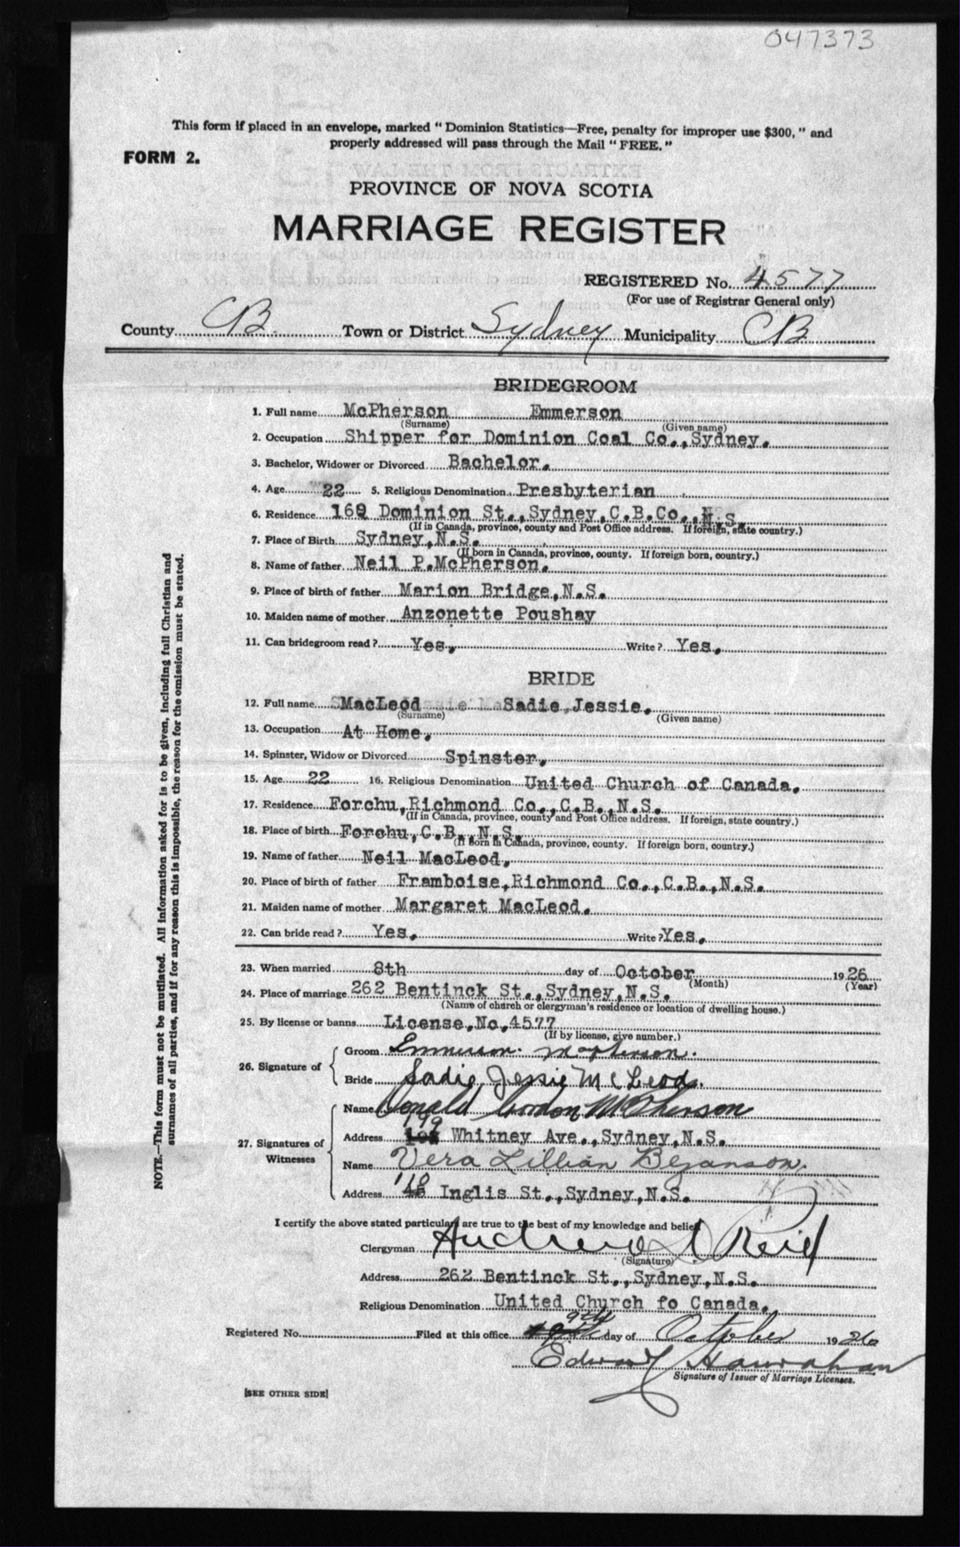 047373
This form if placed in an envelope, marked "Dominion Statistics—Free, penalty for improper use $300," and
properly addressed will pass through the Mail "FREE."
FORM 2.
PROVINCE OF NOVA SCOTIA
MARRIAGE REGISTER
REGISTERED No. 4577
(For use of Registrar General only)
County CB Town or District Sydney Municipality CB
BRIDEGROOM
1. Full name McPherson Emmerson
(Surname) (Given name)
2. Occupation Shipper for Dominion Coal Co., Sydney.
3. Bachelor, Widower or Divorced Bachelor.
4. Age 22 5. Religious Denomination Presbyterian
6. Residence 169 Dominion St., Sydney, C.B.Co., N.S.
(If in Canada, province, county and Post Office address. If foreign, state country.)
7. Place of Birth Sydney, N.S.
(If born in Canada, province, county. If foreign born, country.)
8. Name of father Neil P. McPherson.
9. Place of birth of father Marion Bridge, N.S.
10. Maiden name of mother Anzonette Poushay
11. Can bridegroom read? Yes. Write? Yes.
BRIDE
12. Full name MacLeod Sadie Jessie.
(Surname) (Given name)
13. Occupation At Home.
14. Spinster, Widow or Divorced Spinster.
15. Age 22 16. Religious Denomination United Church of Canada.
17. Residence Forchu, Richmond Co., C.B., N.S.
(If in Canada, province, county and Post Office address. If foreign, state country.)
18. Place of birth Forchu, C.B., N.S.
(If born in Canada, province, county. If foreign born, country.)
19. Name of father Neil MacLeod.
20. Place of birth of father Framboise, Richmond Co., C.B., N.S.
21. Maiden name of mother Margaret MacLeod.
22. Can bride read? Yes. Write? Yes.
23. When married 8th day of October 1926
(Month) (Year)
24. Place of marriage 262 Bentinck St., Sydney, N.S.
(Name of church or clergyman's residence or location of dwelling house.)
25. By license or banns License, No, 4577
(If by license, give number.)
26. Signature of
Groom Emmerson McPherson.
Bride Sadie Jessie McLeod.
27. Signatures of Witnesses
Name Donald Gordon McPherson
Address 199 Whitney Ave., Sydney, N.S.
Name Vera Lillian Bezanson.
Address 18 Inglis St., Sydney, N.S.
I certify the above stated particulars are true to the best of my knowledge and belief
Clergyman Andrew D Reid
(Signature)
Address 262 Bentinck St., Sydney, N.S.
Religious Denomination United Church fo Canada.
Registered No. Filed at this office 9th day of October 1926
Edward Hanrahan
Signature of Issuer of Marriage Licenses.
[SEE OTHER SIDE]
NOTE.—This form must not be mutilated. All information asked for is to be given, including full Christian and
surnames of all parties, and if for any reason this is impossible, the reason for the omission must be stated.